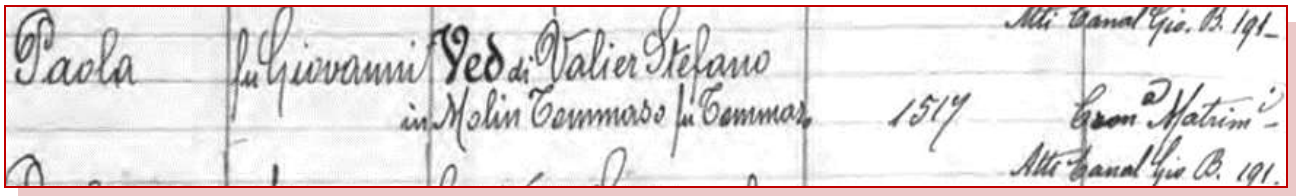 Atti Canal Gio. B. 191-
Paola fu Giovanni Ved di Valier Stefano
in Molin Tommaso fu Tommas. 1517 Cron.a Matrim.i
Atti Canal Gio B. 191.